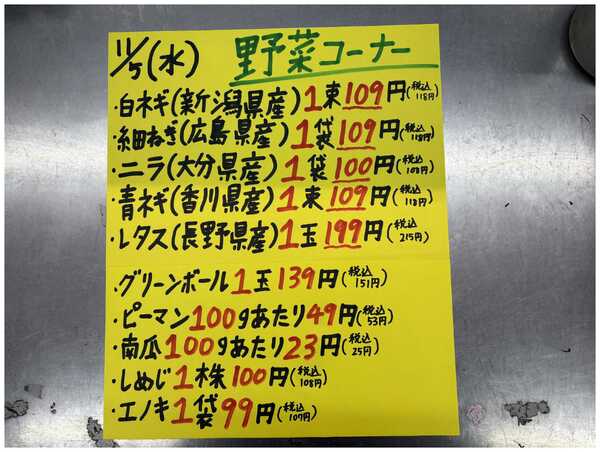 11/5(水) 野菜コーナー
・白ネギ(新潟県産)1束109円(税込118円)
・細ねぎ(広島県産)1袋109円(税込118円)
・ニラ(大分県産)1袋100円(税込108円)
・青ネギ(香川県産)1束109円(税込118円)
・レタス(長野県産)1玉199円(税込215円)
・グリーンボール1玉139円(税込151円)
・ピーマン100gあたり49円(税込53円)
・南瓜100gあたり23円(税込25円)
・しめじ1株100円(税込108円)
・エノキ1袋99円(税込107円)